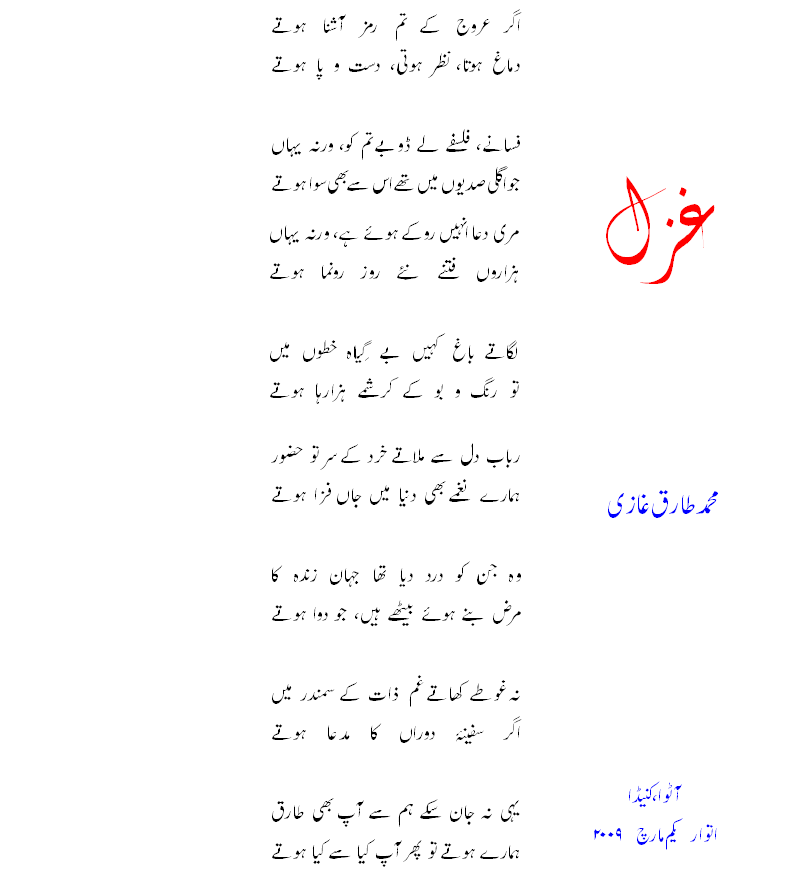 اگر عروج کے تم رمز آشنا ہوتے
دماغ ہوتا، نظر ہوتی، دست و پا ہوتے
فسانے، فلسفے لے ڈوبے تم کو، ورنہ یہاں
جو اگلی صدیوں میں تھے اس سے بھی سوا ہوتے
غزل
مری دعا انہیں روکے ہوئے ہے، ورنہ یہاں
ہزاروں فتنے نئے روز رونما ہوتے
لگاتے باغ کہیں بے گِیاہ خطوں میں
تو رنگ و بو کے کرشمے ہزارہا ہوتے
رباب دل سے ملاتے خرد کے سر تو حضور
ہمارے نغمے بھی دنیا میں جاں فزا ہوتے
محمد طارق غازی
وہ جن کو درد دیا تھا جہان زندہ کا
مرض بنے ہوئے بیٹھے ہیں، جو دوا ہوتے
نہ غوطے کھاتے غم ذات کے سمندر میں
اگر سفینۂ دوراں کا مدعا ہوتے
یہی نہ جان سکے ہم سے آپ بھی طارق
ہمارے ہوتے تو پھر آپ کیا سے کیا ہوتے
آٹوا، کنیڈا
اتوار یکم مارچ ۲۰۰۹